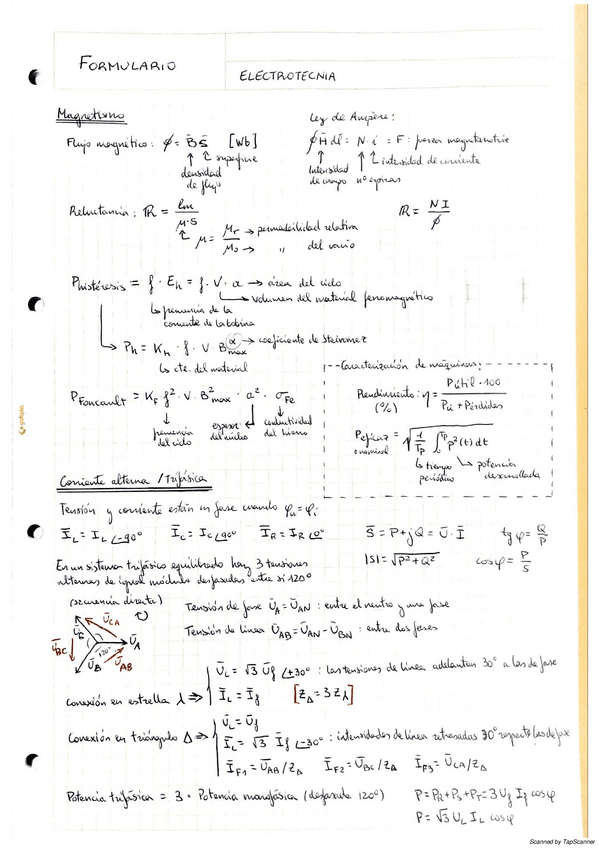 FORMULARIO
ELECTROTECNIA
Magnetismo
Flujo magnético: ϕ = B̄ S̄ [Wb]
superficie
densidad de flujo
Ley de Ampère:
∮ H̄ dl̄ = N · i = F: fuerza magnetomotriz
intensidad de corriente
Intensidad de campo
nº espiras
Reluctancia: ℝ = lm / μ·S
μ = μr / μo
→ permeabilidad relativa
→ " del vacío
ℝ = N I / ϕ
Phistéresis = f · Eh = f · V · a → área del ciclo
volumen del material ferromagnético
frecuencia de la corriente de la bobina
→ Ph = Kh · f · V B^α max → coeficiente de Steinmez
cte. del material
PFoucault = KF f² · V · B²max · a² · σFe
frecuencia del ciclo
espesor del núcleo
conductividad del hierro
Caracterización de máquinas:
Rendimiento: η = Pútil · 100 / Pú + Pérdidas
(%)
Peficaz = √(1/Tp ∫₀^Tp p²(t) dt)
o nominal
tiempo periódico
potencia desarrollada
Corriente alterna / Trifásica
Tensión y corriente están en fase cuando φu = φi
Ī_L = I_L ∠-90° Ī_C = I_C ∠90° Ī_R = I_R ∠0° S̄ = P + jQ = Ū · Ī tg φ = Q/P
|S| = √(P² + Q²) cos φ = P/S
En un sistema trifásico equilibrado hay 3 tensiones
alternas de igual módulo desfasadas entre sí 120°
(secuencia directa)
Ū_CA
Ū_C
Ū_A
Ū_BC
120°
Ū_B
Ū_AB
Tensión de fase Ū_A = Ū_AN: entre el neutro y una fase
Tensión de línea Ū_AB = Ū_AN - Ū_BN: entre dos fases
Conexión en estrella λ ⇒
Ū_L = √3 Ū_f ∠+30°: las tensiones de línea adelantan 30° a las de fase
Ī_L = Ī_f [Z_Δ = 3 Z_λ]
Conexión en triángulo Δ ⇒
Ū_L = Ū_f
Ī_L = √3 Ī_f ∠-30°: intensidades de línea retrasadas 30° respecto las de fase
Ī_F1 = Ū_AB / Z_Δ Ī_F2 = Ū_BC / Z_Δ Ī_F3 = Ū_CA / Z_Δ
Potencia trifásica = 3 · Potencia monofásica (desfasada 120°)
P = P_R + P_S + P_T = 3 U_f I_f cos φ
P = √3 U_L I_L cos φ
Scanned by TapScanner